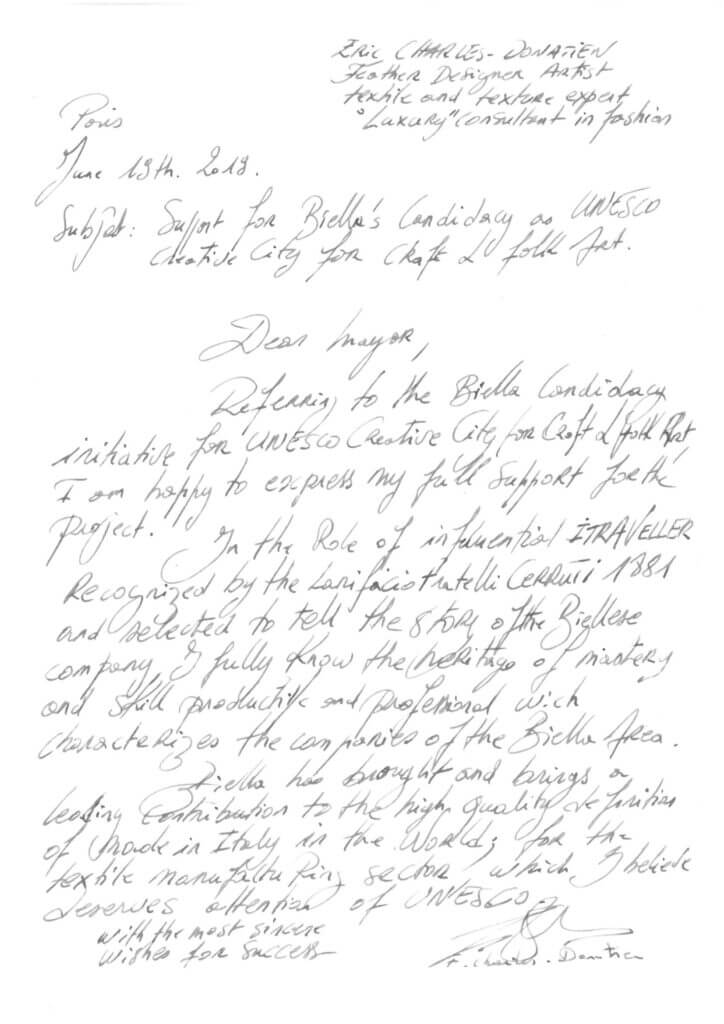 ERIC CHARLES-DONATIEN
Feather Designer Artist
textile and texture expert
"Luxury" consultant in fashion
Paris
June 19th. 2019.
Subject: Support for Biella's Candidacy as UNESCO
Creative City for Craft & folk Art.
Dear Mayor,
Referring to the Biella Candidacy
initiative for UNESCO Creative City for Craft & folk Art,
I am happy to express my full support for the
project.
In the Role of influential ITRAVELLER
Recognized by the Lanificio fratelli CERRUTI 1881
and selected to tell the story of the Biellese
company, I fully know the heritage of mastery
and skill productive and professional wich
characterizes the companies of the Biella Area.
Biella has brought and brings a
leading contribution to the high quality definition
of Made in Italy in the World; for the
textile manufacturing sector, which, I believe
deserves attention of UNESCO.
with the most sincere
wishes for success
E. Charles-Donatien